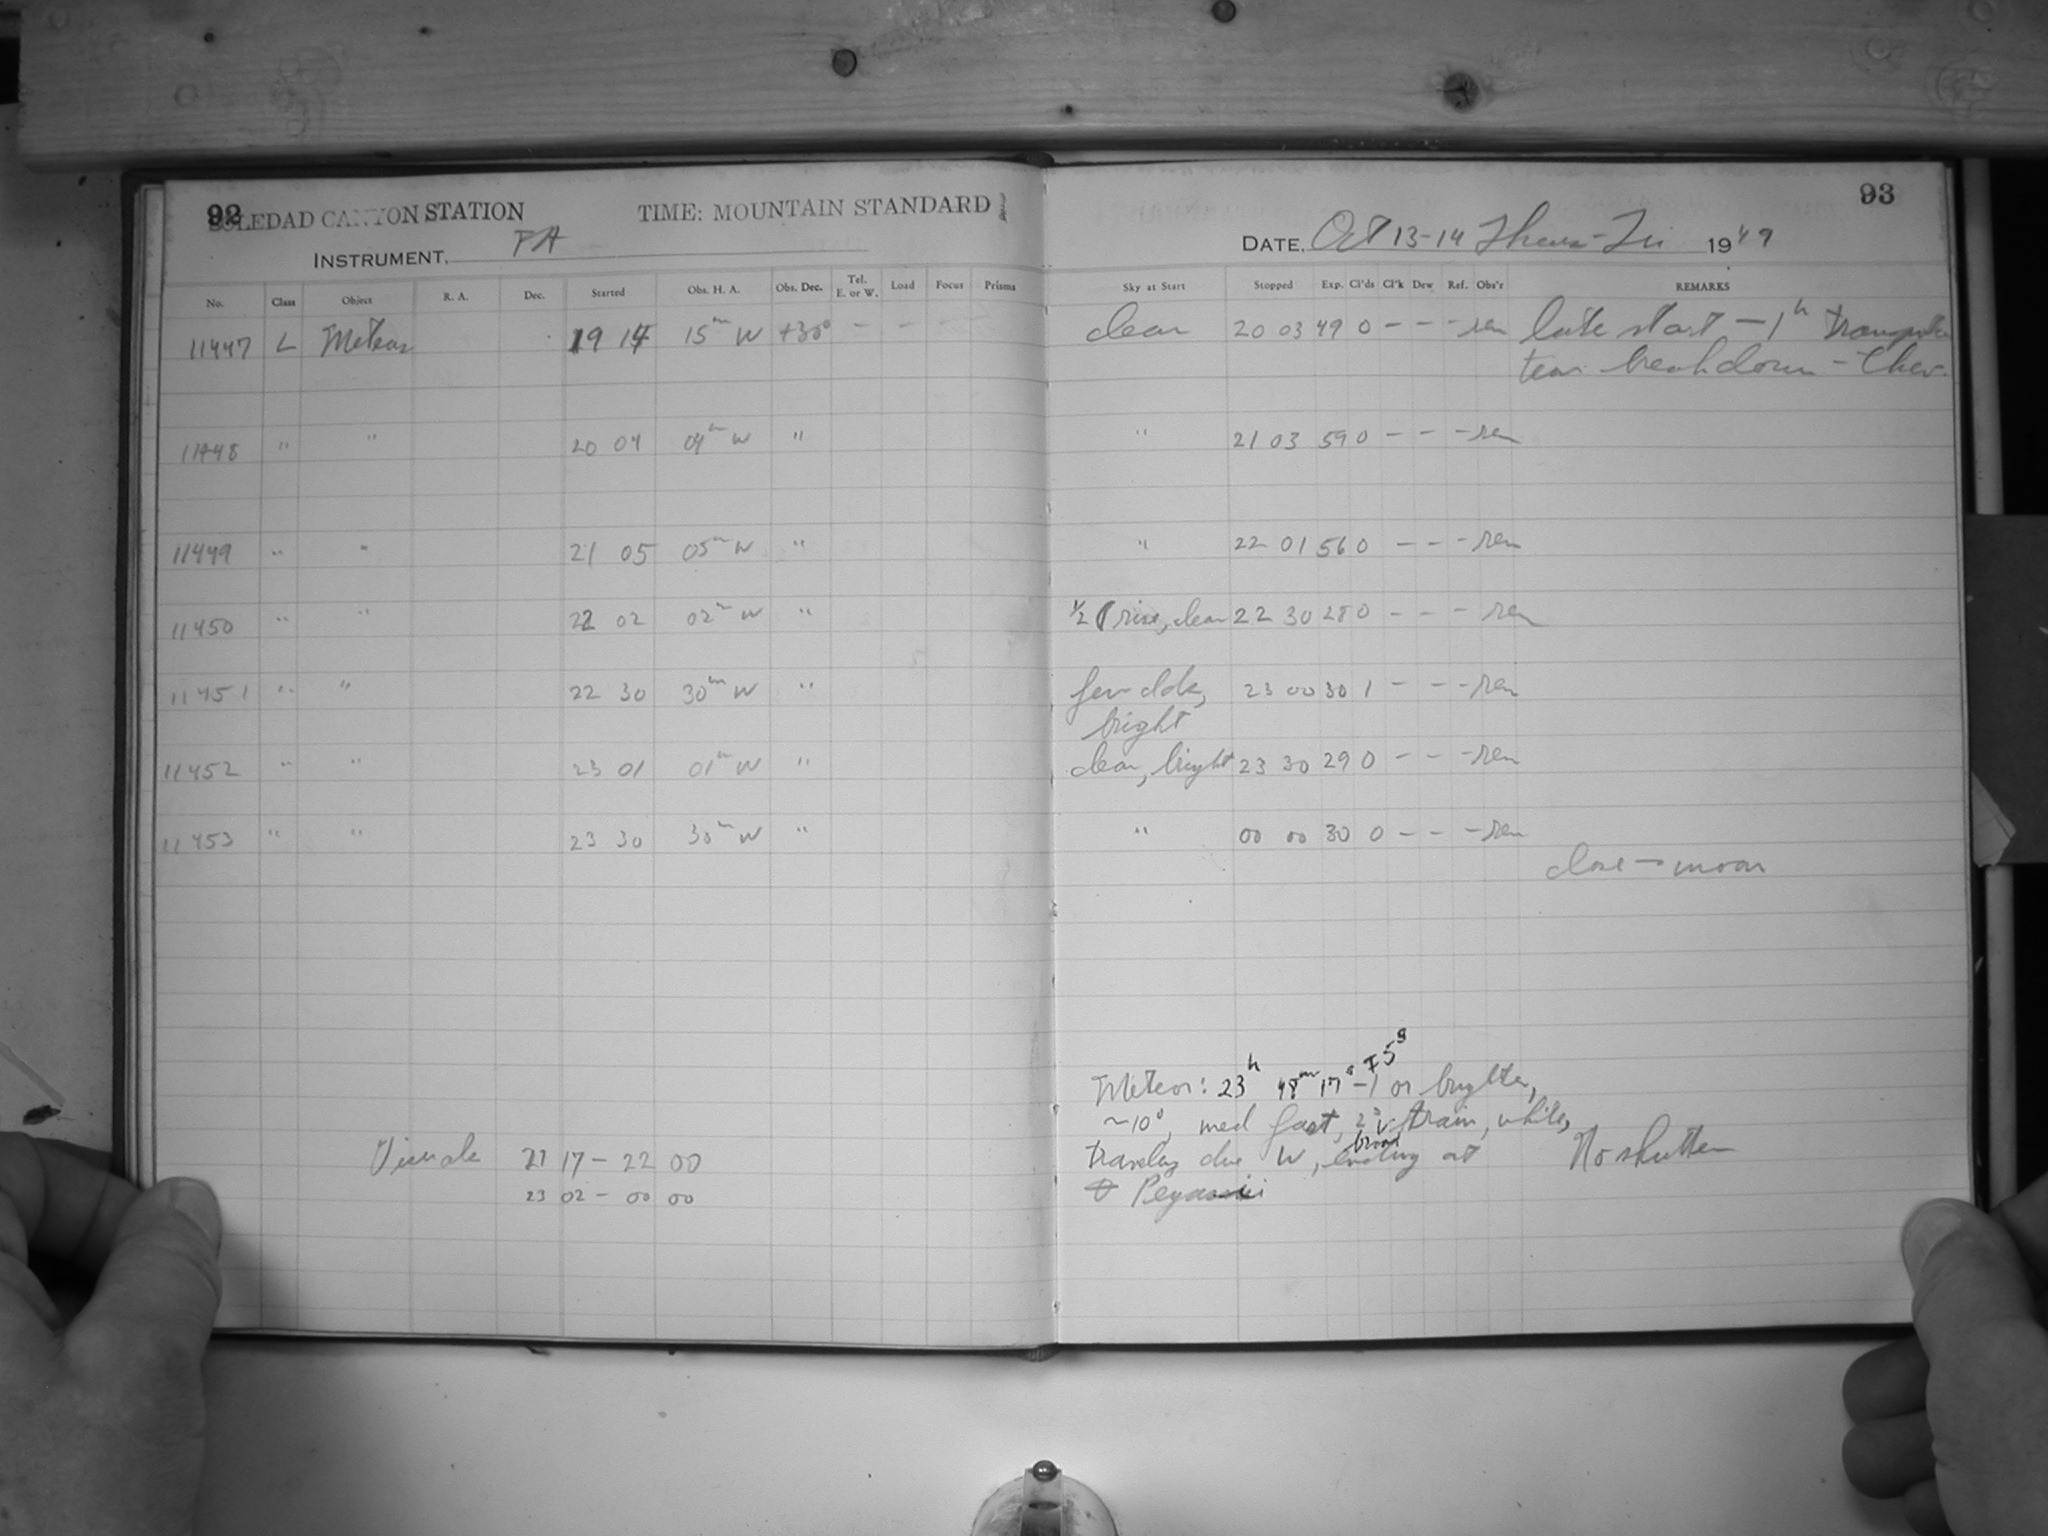 92
SOLEDAD CANYON STATION TIME: MOUNTAIN STANDARD
INSTRUMENT. FA
No. Class Object R. A. Dec. Started Obs. H. A. Obs. Dec. Tel. E. or W. Load Focus Prisms
11447 L Meteors 19 14 15m W +30° - - - -
11448 " " 20 04 04m W "
11449 " " 21 05 05m W "
11450 " " 22 02 02m W "
11451 " " 22 30 30m W "
11452 " " 23 01 01m W "
11453 " " 23 30 30m W "
Visuals 21 17 - 22 00
23 02 - 00 00
93
DATE, Oct 13-14 Thurs-Fri 1949
Sky at Start Stopped Exp. Cl'ds Cl'k Dew Ref. Obs'r REMARKS
clear 20 03 49 0 - - - rem late start - 1h transporta
tion breakdown - Chev.
" 21 03 59 0 - - - rem
" 22 01 56 0 - - - rem
1/2 ( rise, clear 22 30 28 0 - - - rem
few clds, 23 00 30 1 - - - rem
bright
clear, bright 23 30 29 0 - - - rem
" 00 00 30 0 - - - rem
close - moon
Meteor: 23h 48m 17s ±5s -1 or brighter,
~10°, med fast, train, white,
traveling due W, ending at No shutter
θ Pegasii